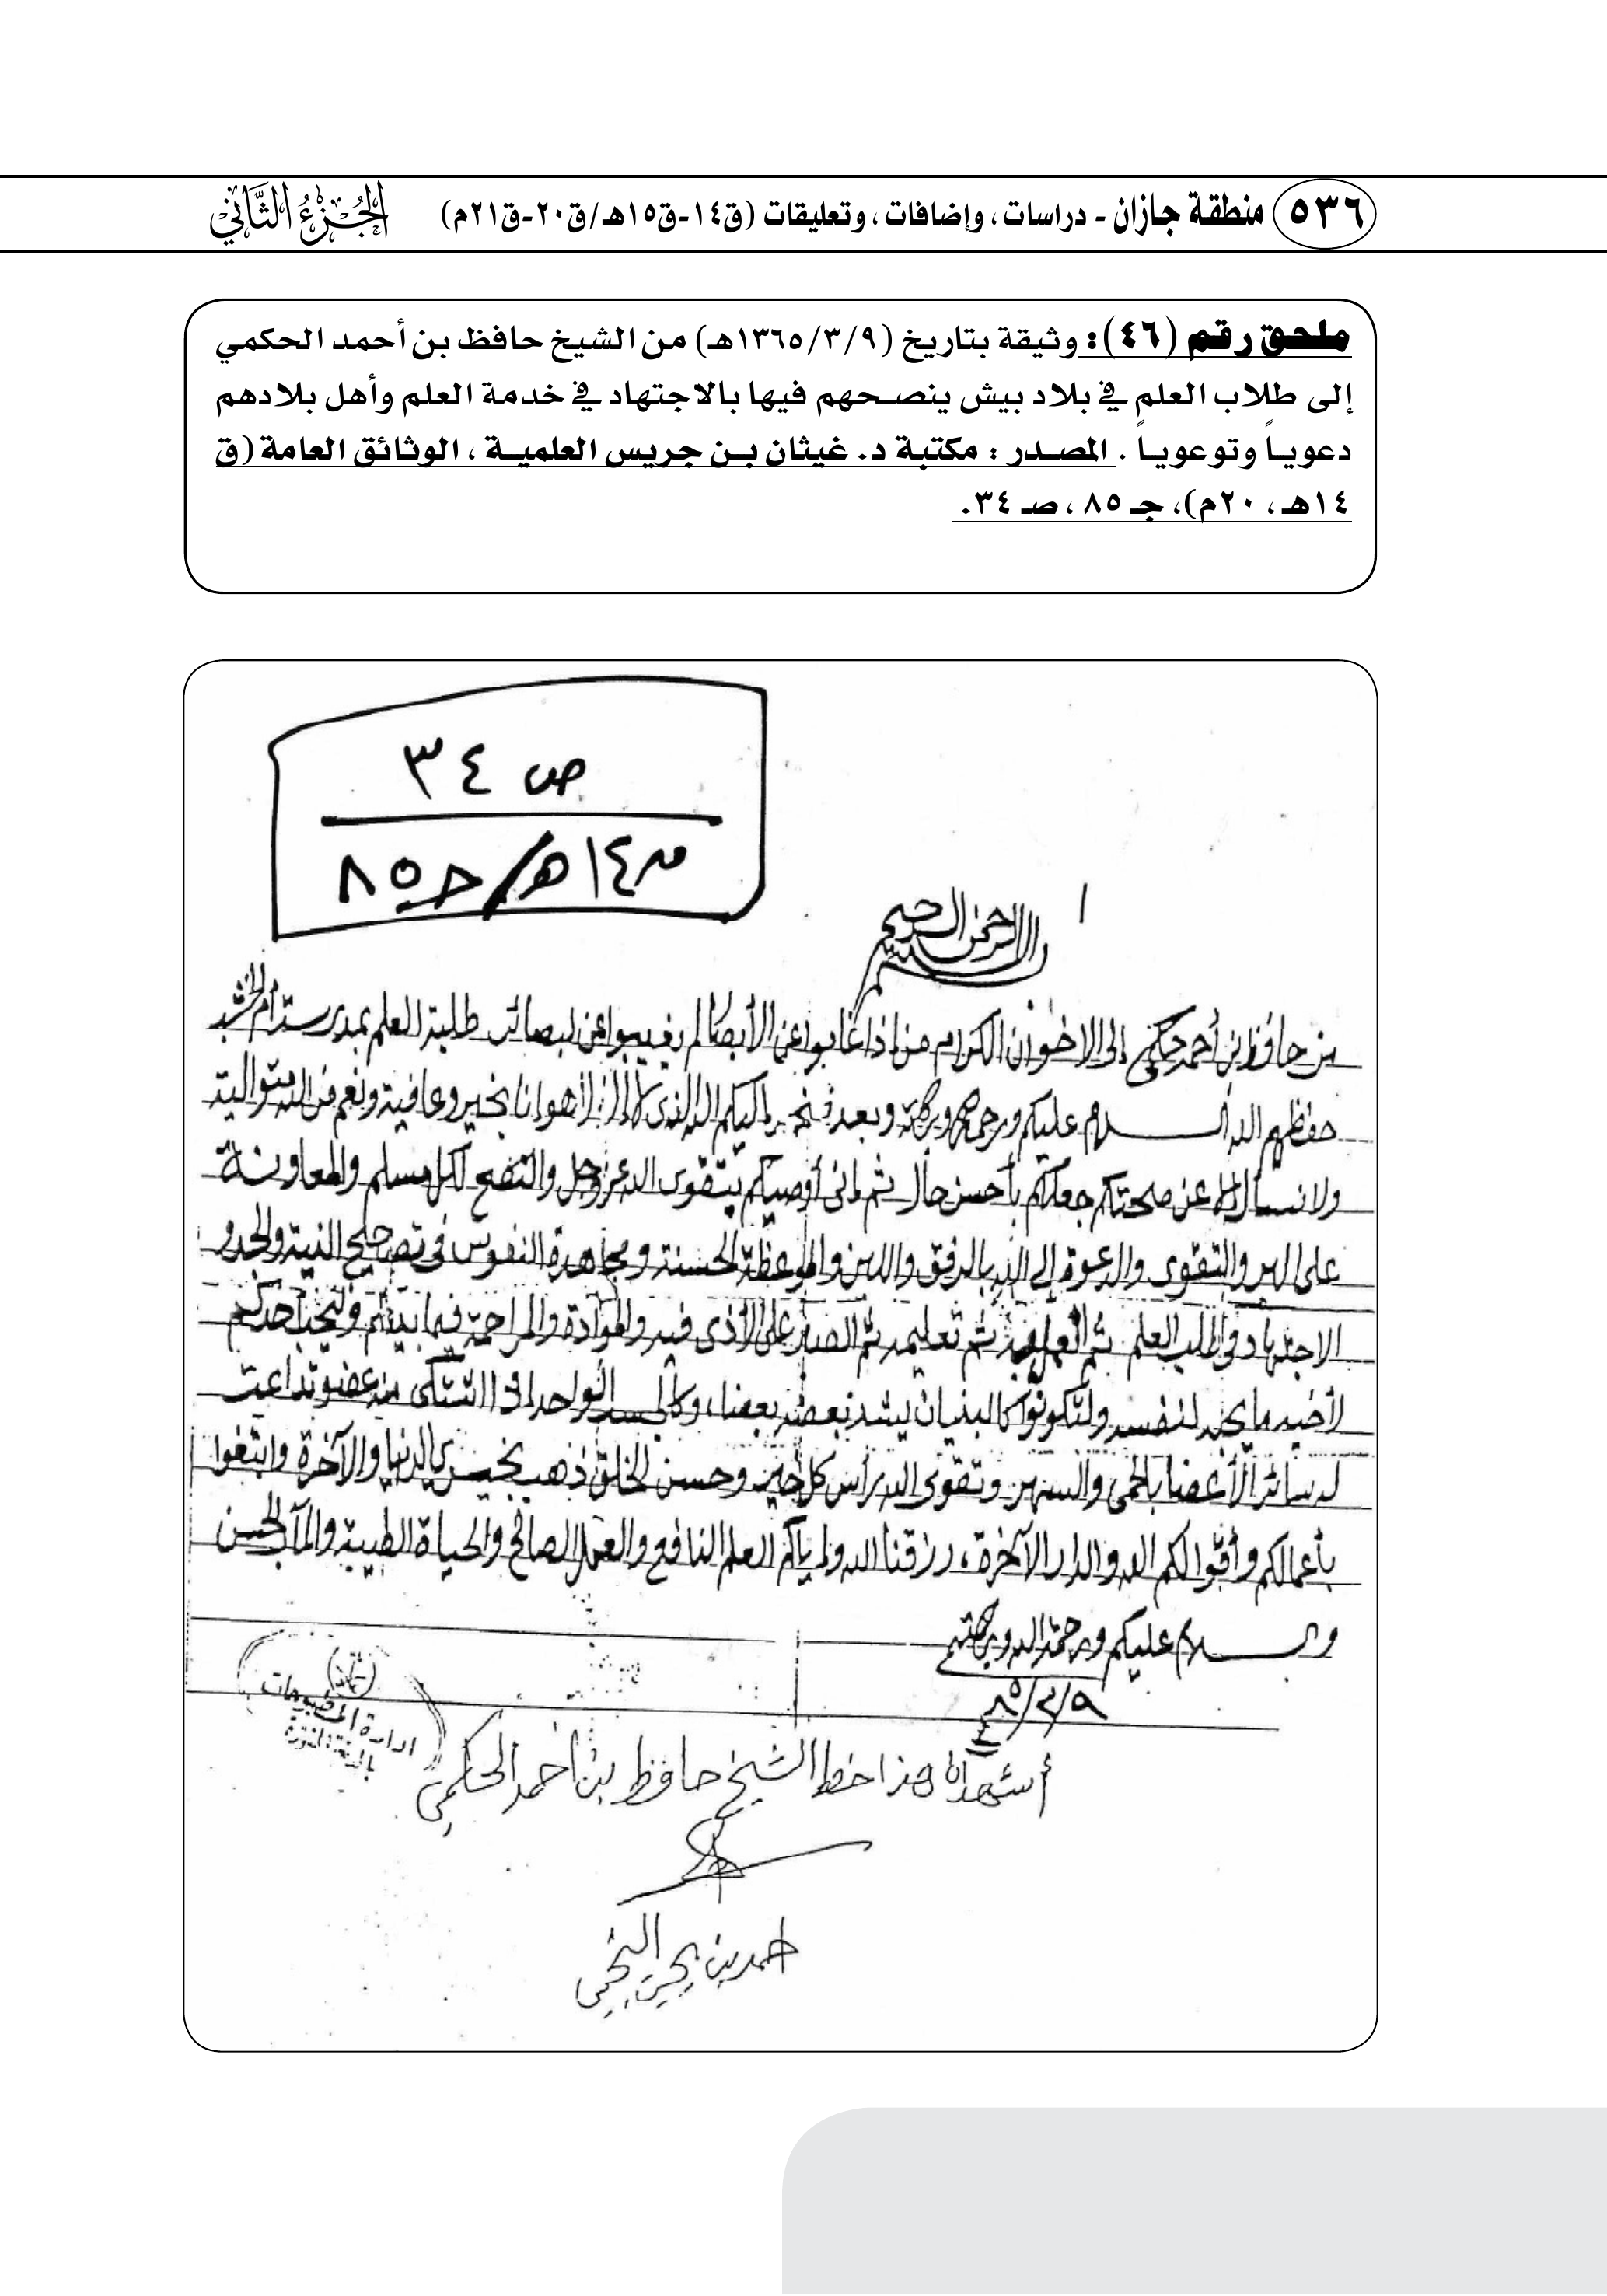 ٥٣٦ منطقة جازان - دراسات، وإضافات، وتعليقات (ق١٤-ق١٥هـ/ق٢٠-ق٢١م) الجزء الثاني
ملحق رقم (٤٦): وثيقة بتاريخ (١٣٦٥/٣/٩هـ) من الشيخ حافظ بن أحمد الحكمي
إلى طلاب العلم في بلاد بيش ينصحهم فيها بالاجتهاد في خدمة العلم وأهل بلادهم
دعوياً وتوعوياً . المصدر : مكتبة د. غيثان بن جريس العلمية ، الوثائق العامة (ق
١٤هـ ، ٢٠م)، جـ ٨٥ ، صـ ٣٤.
ص ٣٤
ق ١٤هـ / جـ ٨٥
١
بسم الله الرحمن الرحيم
من حافظ بن أحمد حكمي إلى الإخوان الكرام من إذا غابوا عن الأبصار لم يغيبوا عن البصائر طلبة العلم بمدرسة أم الخشب
حفظهم الله السلام عليكم ورحمة الله وبركاته وبعد فنحمد إليكم الله الذي لا إله إلا هو أنا بخير وعافية ونعم من الله متوالية
ولا نسأل إلا عن صحتكم جعلكم بأحسن حال ثم إني أوصيكم بتقوى الله عز وجل والنصح لكل مسلم والمعاونة
على البر والتقوى والدعوة إلى الله بالرفق واللين والموعظة الحسنة ومجاهدة النفوس في تصحيح النية والجد و
الاجتهاد في طلب العلم ثم العمل به ثم تعليمه ثم الصبر على الأذى فيه والموادة والمراحمة فيما بينكم وليحب أحدكم
لأخيه ما يحب لنفسه ولتكونوا كالبنيان يشد بعضه بعضا، وكالجسد الواحد إذا اشتكى منه عضو تداعت
له سائر الأعضا بالحمى والسهر وتقوى الله رأس كل خير وحسن الخلق ذهب بخيري الدنيا والآخرة وابتغوا
بأعمالكم وأقوالكم الله والدار الآخرة، رزقنا الله وإياكم العلم النافع والعمل الصالح والحياة الطيبة والمآل الحسن
والسلام عليكم ورحمة الله وبركاته
ادارة المطبوعات
بالمدينة المنورة
أشهد أن هذا خط الشيخ حافظ بن أحمد الحكمي
احمد بن يحيى النجمي